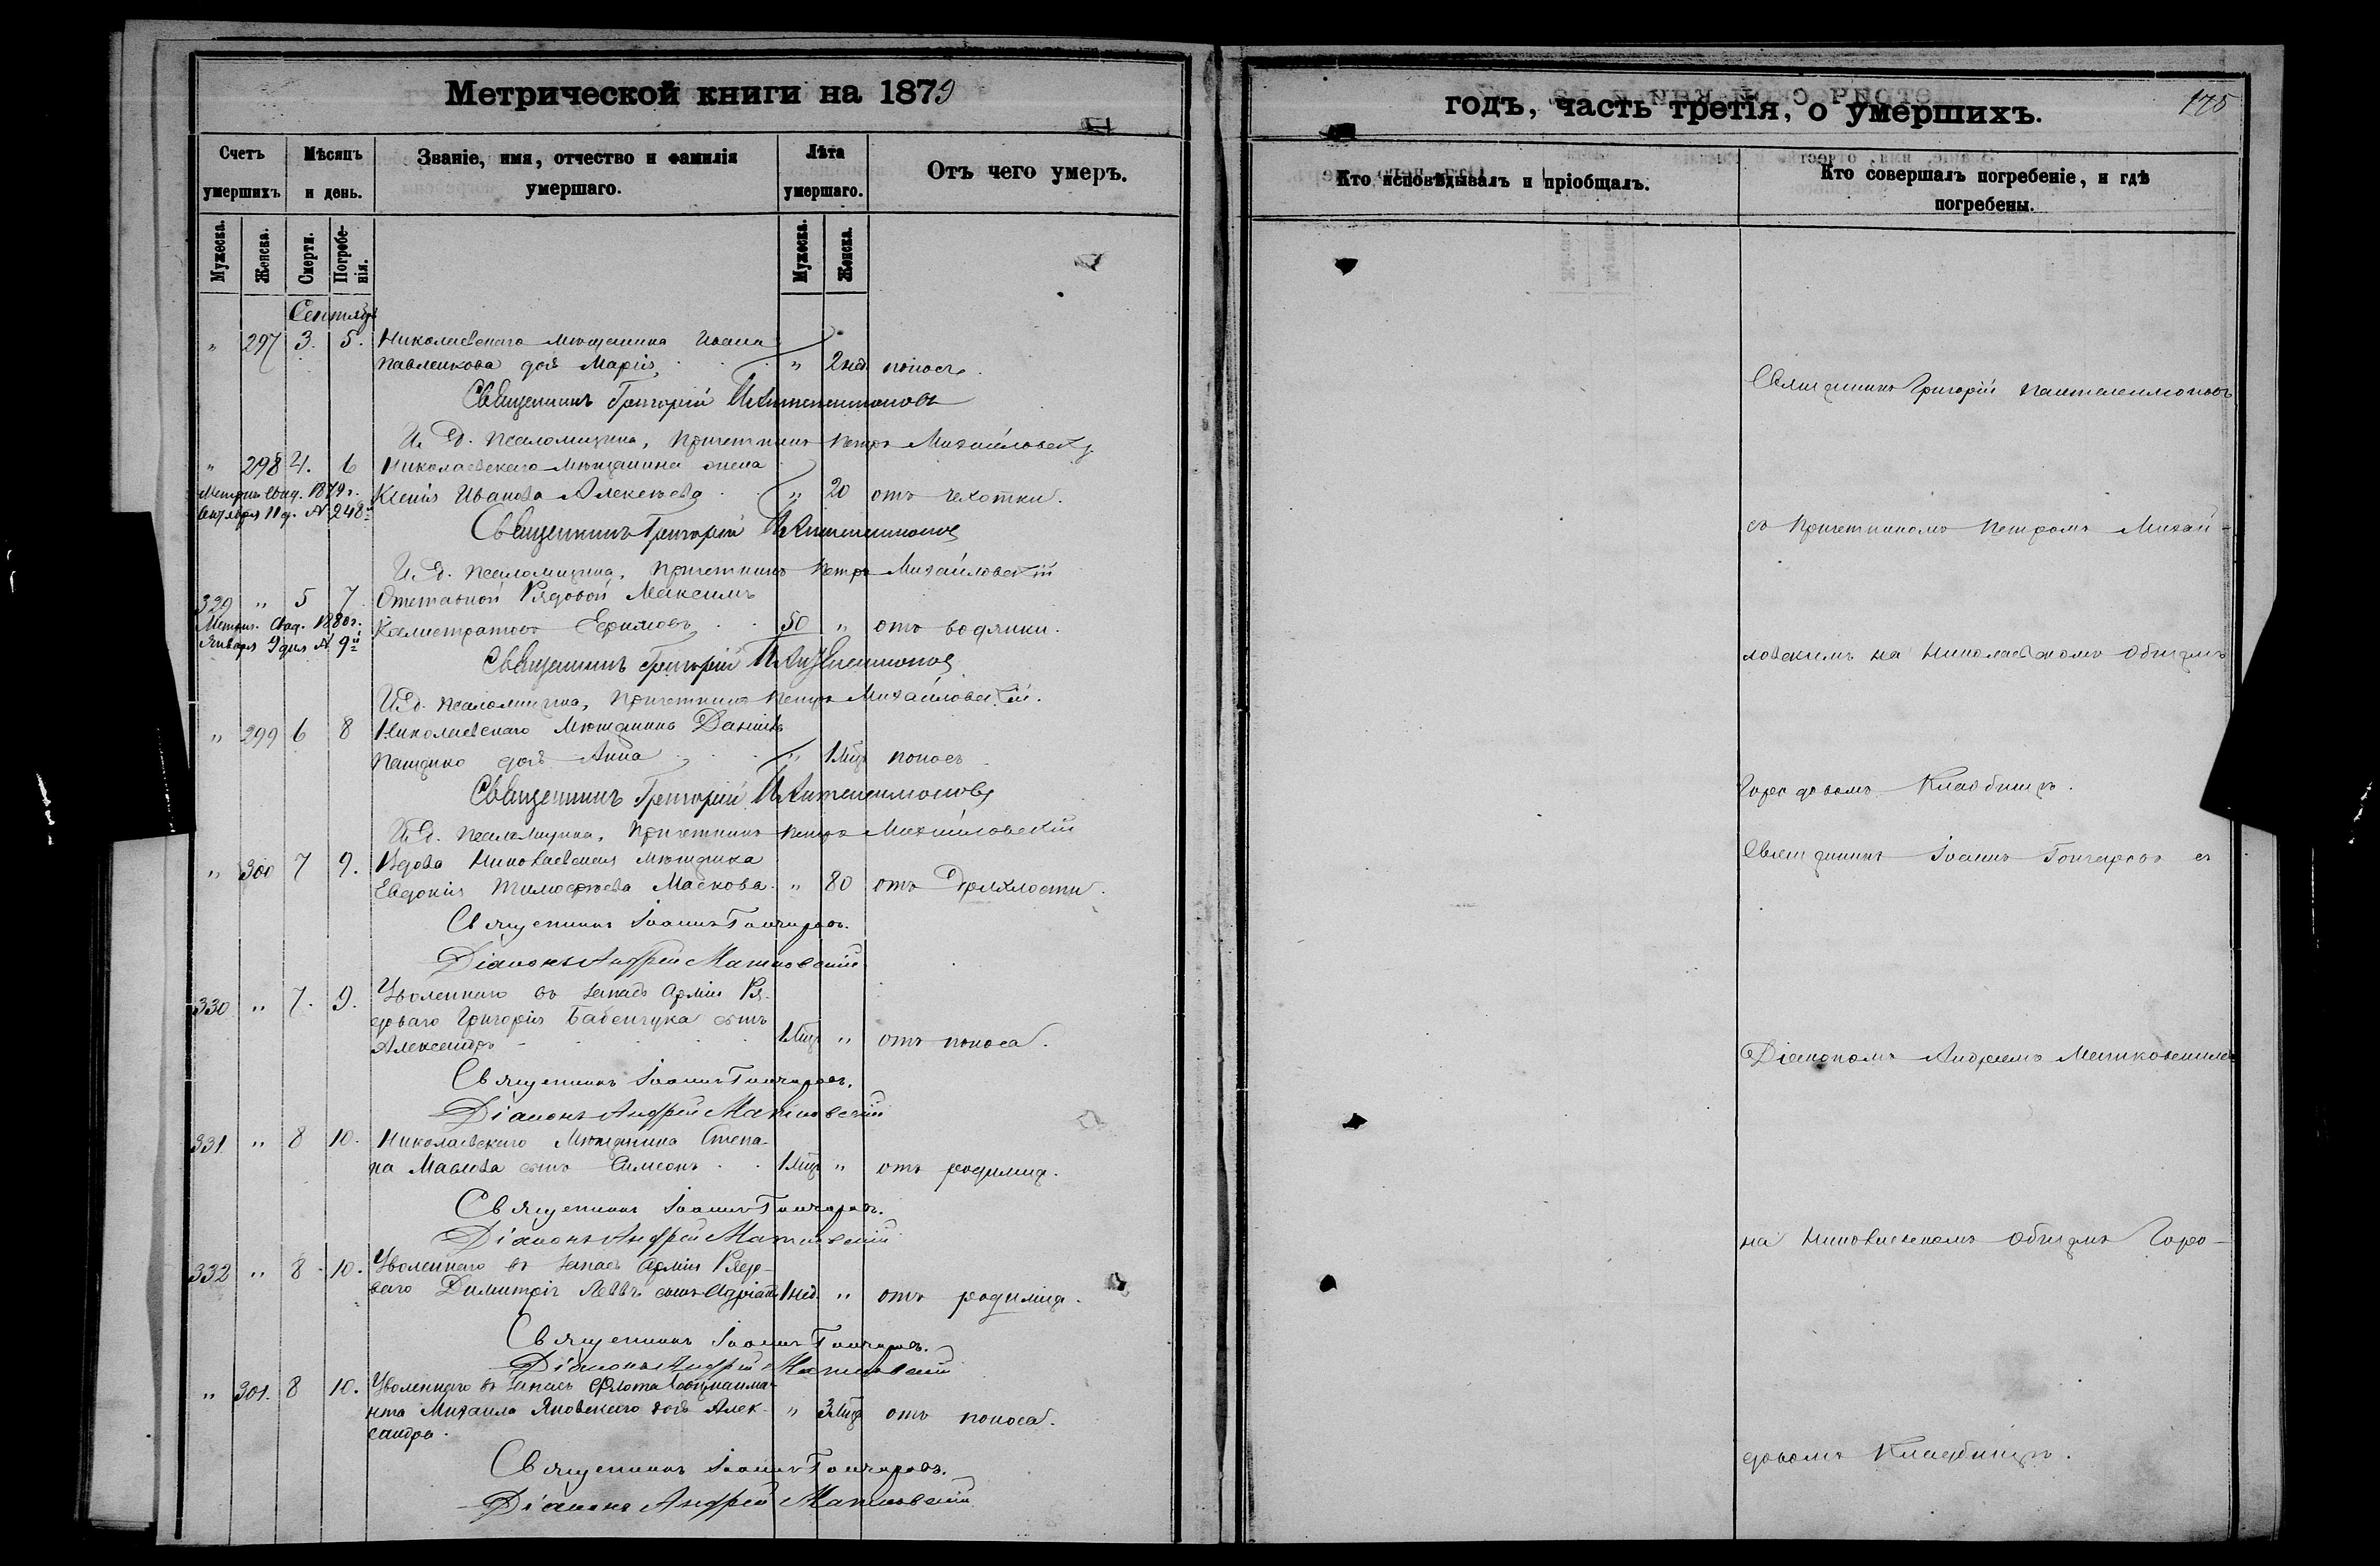 Метрической книги на 1879
годъ, часть третія, о умершихъ.
175
Счетъ умершихъ
Мѣсяцъ и день.
Званіе, имя, отчество и фамилія умершаго.
Лѣта умершаго.
Отъ чего умеръ.
Кто исповѣдывалъ и пріобщалъ.
Кто совершалъ погребеніе, и гдѣ погребены.
Мужеска.
Женска.
Смерти.
Погребенія.
Мужеска.
Женска.
Сентябрь
" 297 3. 5. Николаевскаго мѣщанина Ивана
Павленкова дочь Марія " 2 нед поносъ.
Священникъ Григорій Пантелеимоновъ
И. д. псаломщика, причетникъ Петръ Михайловскій
" 298 4. 6 Николаевскаго мѣщанина жена
Метрич. свид. 1879 г. Ксенія Иванова Алексѣева " 20 отъ чахотки.
Сентября 11 д. № 248й
Священникъ Григорій Пантелеимоновъ
И. д. псаломщика, причетникъ Петръ Михайловскій
329 " 5 7 Отставной Рядовой Максимъ
Метрич. свид. 1880 г. Калистратовъ Ефимовъ 50 " отъ водянки.
Января 9 дня № 9й
Священникъ Григорій Пантелеимоновъ
И. д. псаломщика, причетникъ Петръ Михайловскій.
" 299 6 8 Николаевскаго мѣщанина Даніила
дочь Анна " 1 мѣс поносъ
Священникъ Григорій Пантелеимоновъ
И. д. псаломщика, причетникъ Петръ Михайловскій
" 300 7 9. Вдова Николаевская мѣщанка
Евдокія Тимофѣева Маскова. " 80 отъ дряхлости.
Священникъ Іоаннъ Гончаровъ.
Діаконъ Андрей Матковскій
330 " 7. 9. Уволеннаго въ запасъ Арміи Ря-
доваго Григорія Бабенчука сынъ
Александръ 1 мѣс " отъ поноса.
Священникъ Іоаннъ Гончаровъ.
Діаконъ Андрей Матковскій
331 " 8 10. Николаевскаго мѣщанина Степа-
на Маслова сынъ Симеонъ 1 мѣс " отъ родимца.
Священникъ Іоаннъ Гончаровъ.
Діаконъ Андрей Матковскій
332 " 8 10. Уволеннаго въ запасъ Арміи Рядо-
ваго Димитрія сынъ Адріанъ 1 нед. " отъ родимца.
Священникъ Іоаннъ Гончаровъ.
Діаконъ Андрей Матковскій
" 301. 8 10. Уволеннаго въ запасъ Флота
Михаила Яновскаго дочь Алек- " 3 мѣс отъ поноса.
сандра.
Священникъ Іоаннъ Гончаровъ.
Діаконъ Андрей Матковскій
Священникъ Григорій Пантелеимоновъ
съ причетникомъ Петромъ Михай-
ловскимъ на Николаевскомъ общемъ
Городовомъ Кладбищѣ.
Священникъ Іоаннъ Гончаровъ съ
Діакономъ Андреемъ Матковскимъ
на Николаевскомъ общемъ Горо-
довомъ Кладбищѣ.